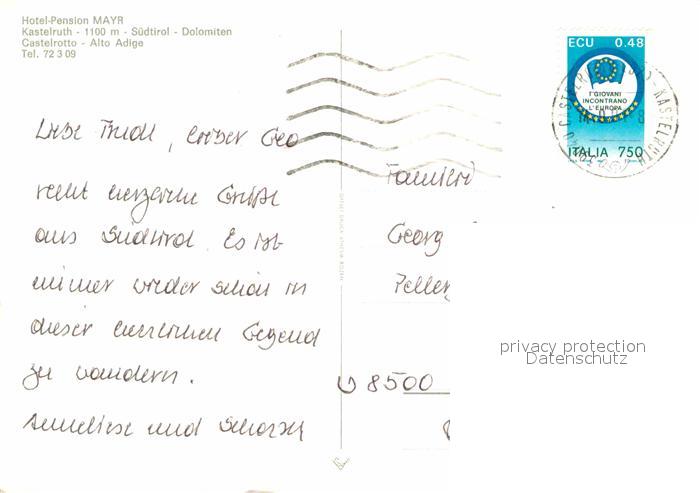 Hotel-Pension MAYR
Kastelruth - 1100 m - Südtirol - Dolomiten
Castelrotto - Alto Adige
Tel. 72 3 09
ECU 0.48
I GIOVANI
INCONTRANO
L'EUROPA
ITALIA 750
KASTELRUTH
Liebe Friedl, lieber Geo
recht herzliche Grüße
aus Südtirol. Es ist
immer wieder schön in
dieser herrlichen Gegend
zu wandern.
Anneliese und Schorsch
Familie
Georg
Peller
8500
privacy protection
Datenschutz